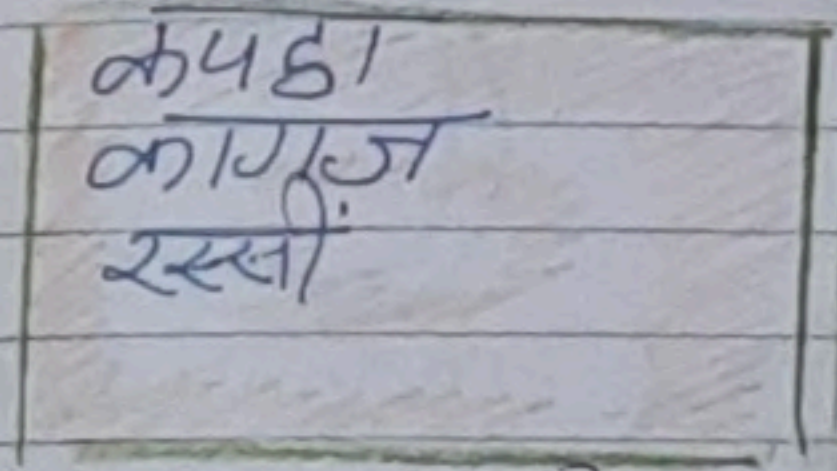 कपडा
कागज
रस्सीं